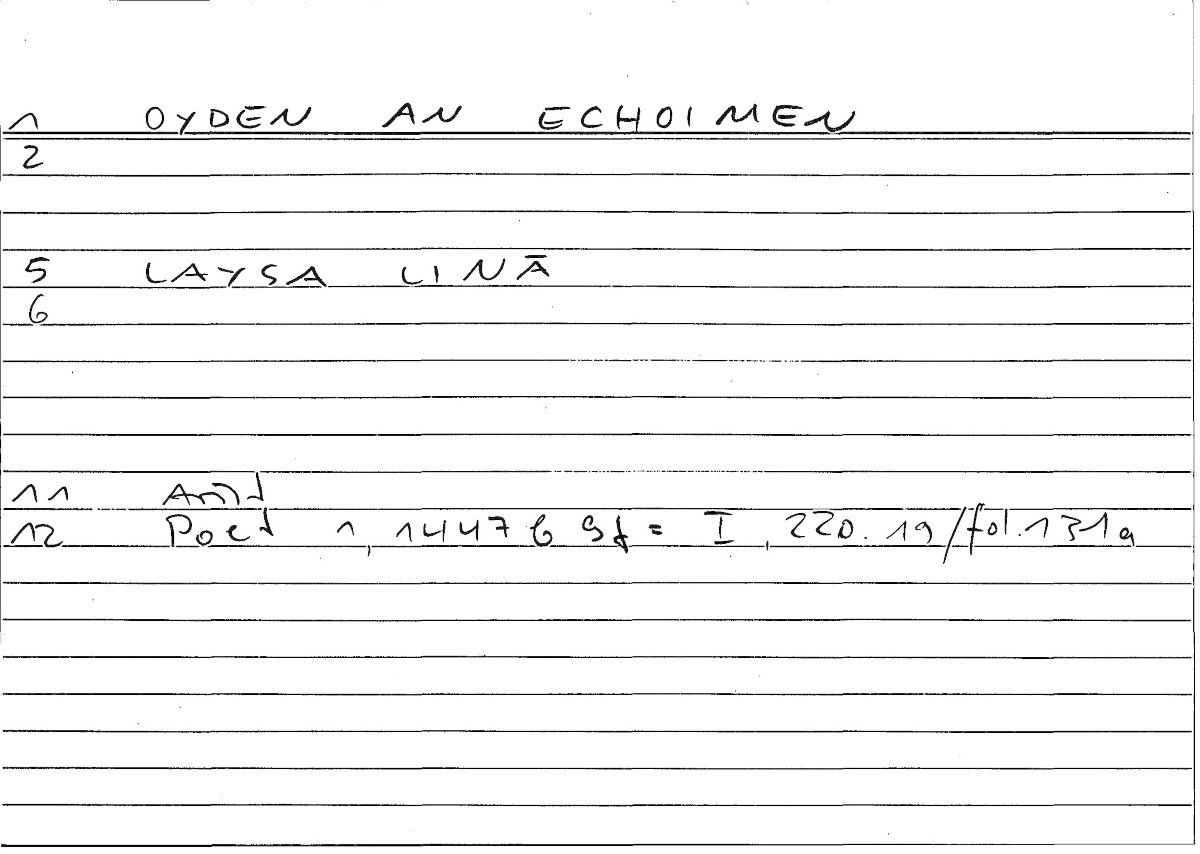 1 OYDEN AN ECHOIMEN
2
5 LAYSA LINĀ
6
11 Arist
12 Poet 1, 1447 b 9f = I, 220.19/fol.131a